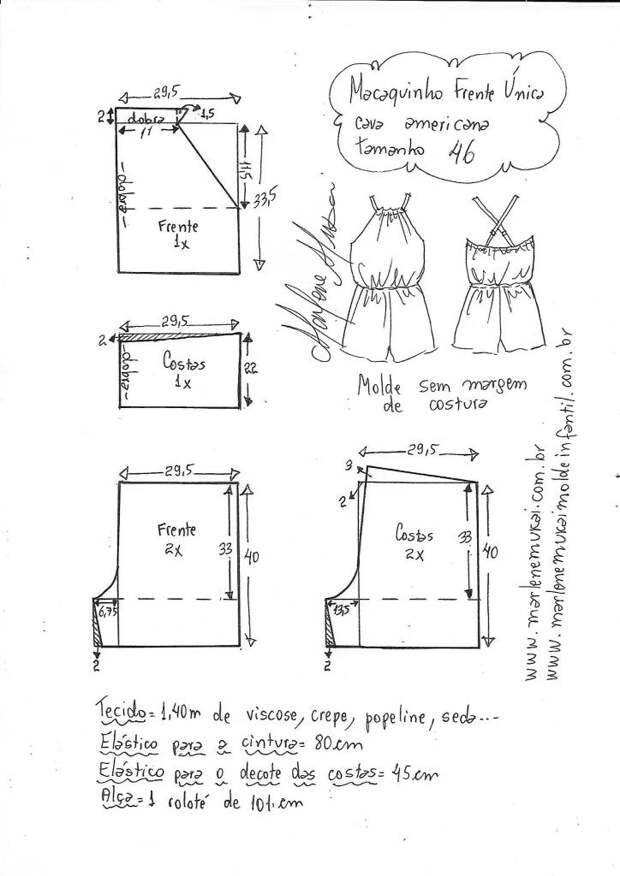 Macaquinho Frente Única
cava americana
tamanho 46
29,5
2
dobra
11
1,5
11,5
33,5
-dobra-
Frente
1x
29,5
2
-dobra-
Costas
1x
22
Molde sem margem
de costura
29,5
Frente
2x
33
40
6,75
2
29,5
3
2
Costas
2x
33
40
13,5
2
www.marlenemukai.com.br
www.marlenemukaimoldeinfantil.com.br
Tecido = 1,40m de viscose, crepe, popeline, seda...
Elástico para a cintura = 80cm
Elástico para o decote das costas = 45cm
Alça = 1 roloté de 101.cm